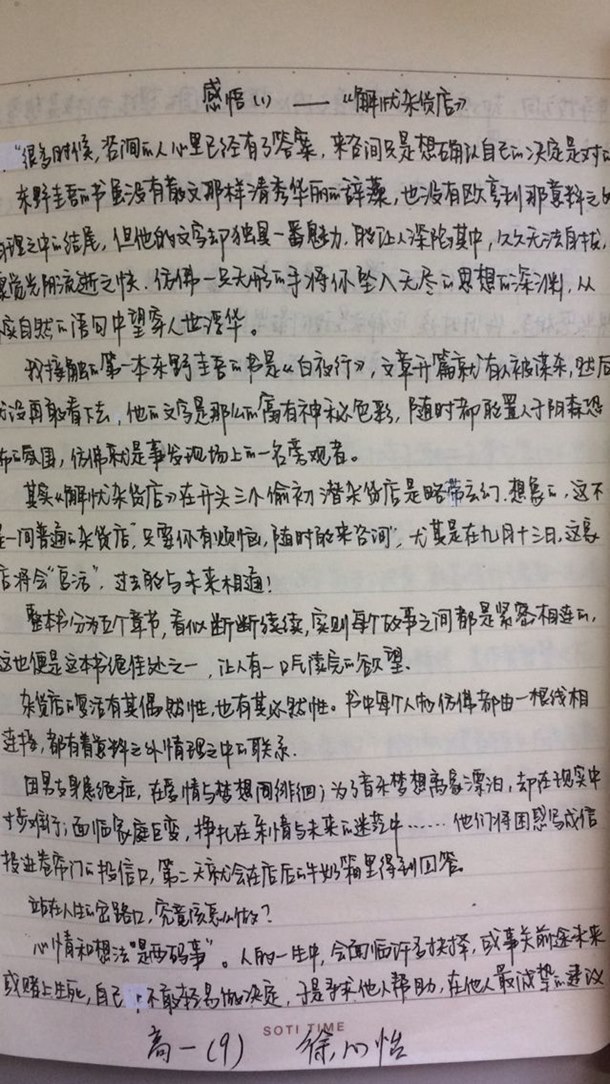 感悟(1) ——《解忧杂货店》
"很多时候,咨询的人心里已经有了答案,来咨询只是想确认自己的决定是对的
东野圭吾的书虽没有散文那样清秀华丽的辞藻,也没有欧亨利那意料之外
理之中的结尾,但他的文字却独具一番魅力,能让人深陷其中,久久无法自拔,
觉光阴流逝之快.仿佛一只无形的手将你坠入无尽的思想的深渊,从
自然的语句中望穿人世浮华。
我接触的第一本东野圭吾的书是《白夜行》,文章开篇就有人被谋杀,然后
我没再敢看下去,他的文字是那么的富有神秘色彩,随时都能置人于阴森恐
怖的氛围,仿佛就是事发现场上的一名旁观者。
其实《解忧杂货店》在开头三个偷初潜杂货店是略带玄幻.想象的,这不
是一间普通的杂货店,"只要你有烦恼,随时能来咨询",尤其是在九月十三日,这家
店将会"复活",过去能与未来相通!
整本书分为五个章节,看似断断续续,实则每个故事之间都是紧密相连的,
这也便是这本书绝佳处之一,让人有一口气读完的欲望。
杂货店的复活有其偶然性,也有其必然性。书中每个人物仿佛都由一根线相
连接,都有着意料之外情理之中的联系.
因男友身患绝症,在爱情与梦想间徘徊;为了音乐梦想离家漂泊,却在现实中
寸步难行;面临家庭巨变,挣扎在亲情与未来的迷茫中……他们将困惑写成信
投进卷帘门的投信口,第二天就会在店后的牛奶箱里得到回答。
站在人生的岔路口,究竟该怎么做?
心情和想法"是两码事"。人的一生中,会面临许多抉择,或事关前途未来
或赌上生死,自己不敢轻易做决定,于是寻求他人帮助,在他人最诚挚的建议
SOTI TIME
高一(9) 徐心怡